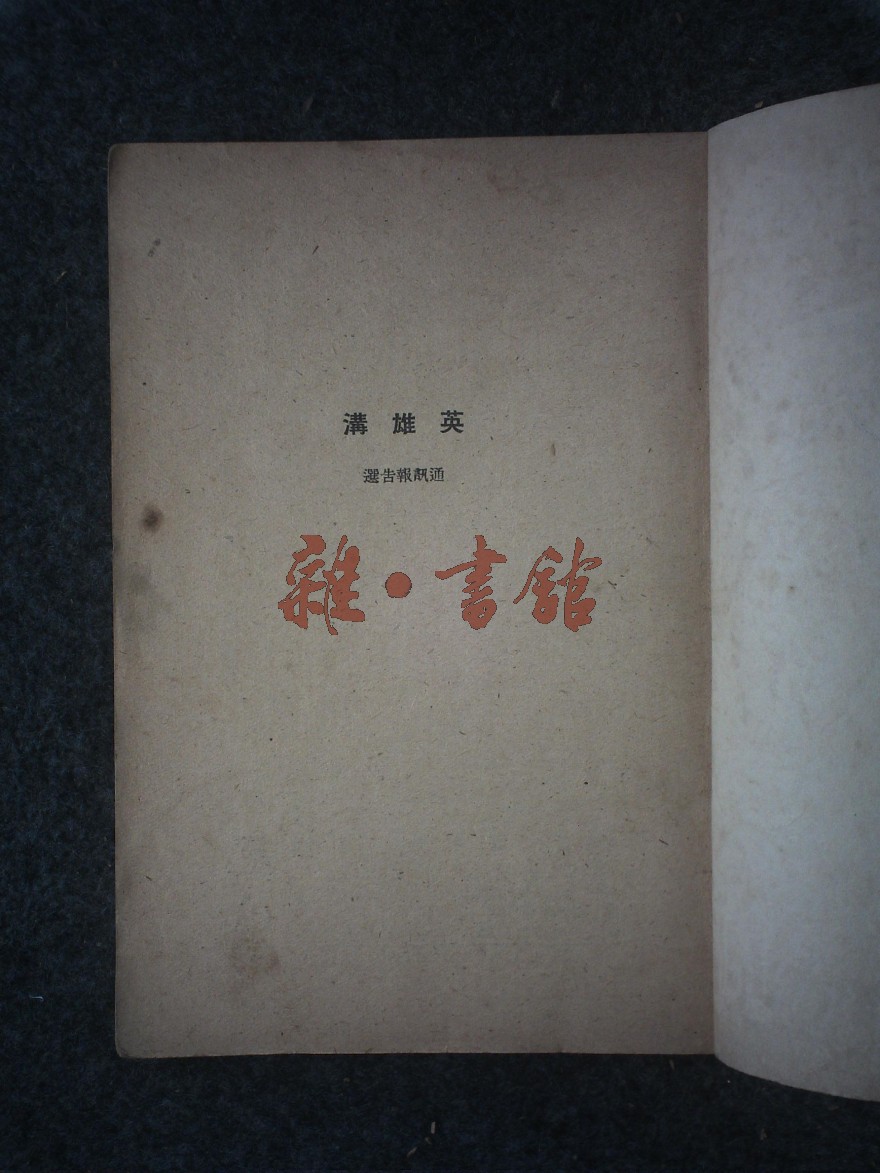 英雄溝
通訊報告選
雜·書館